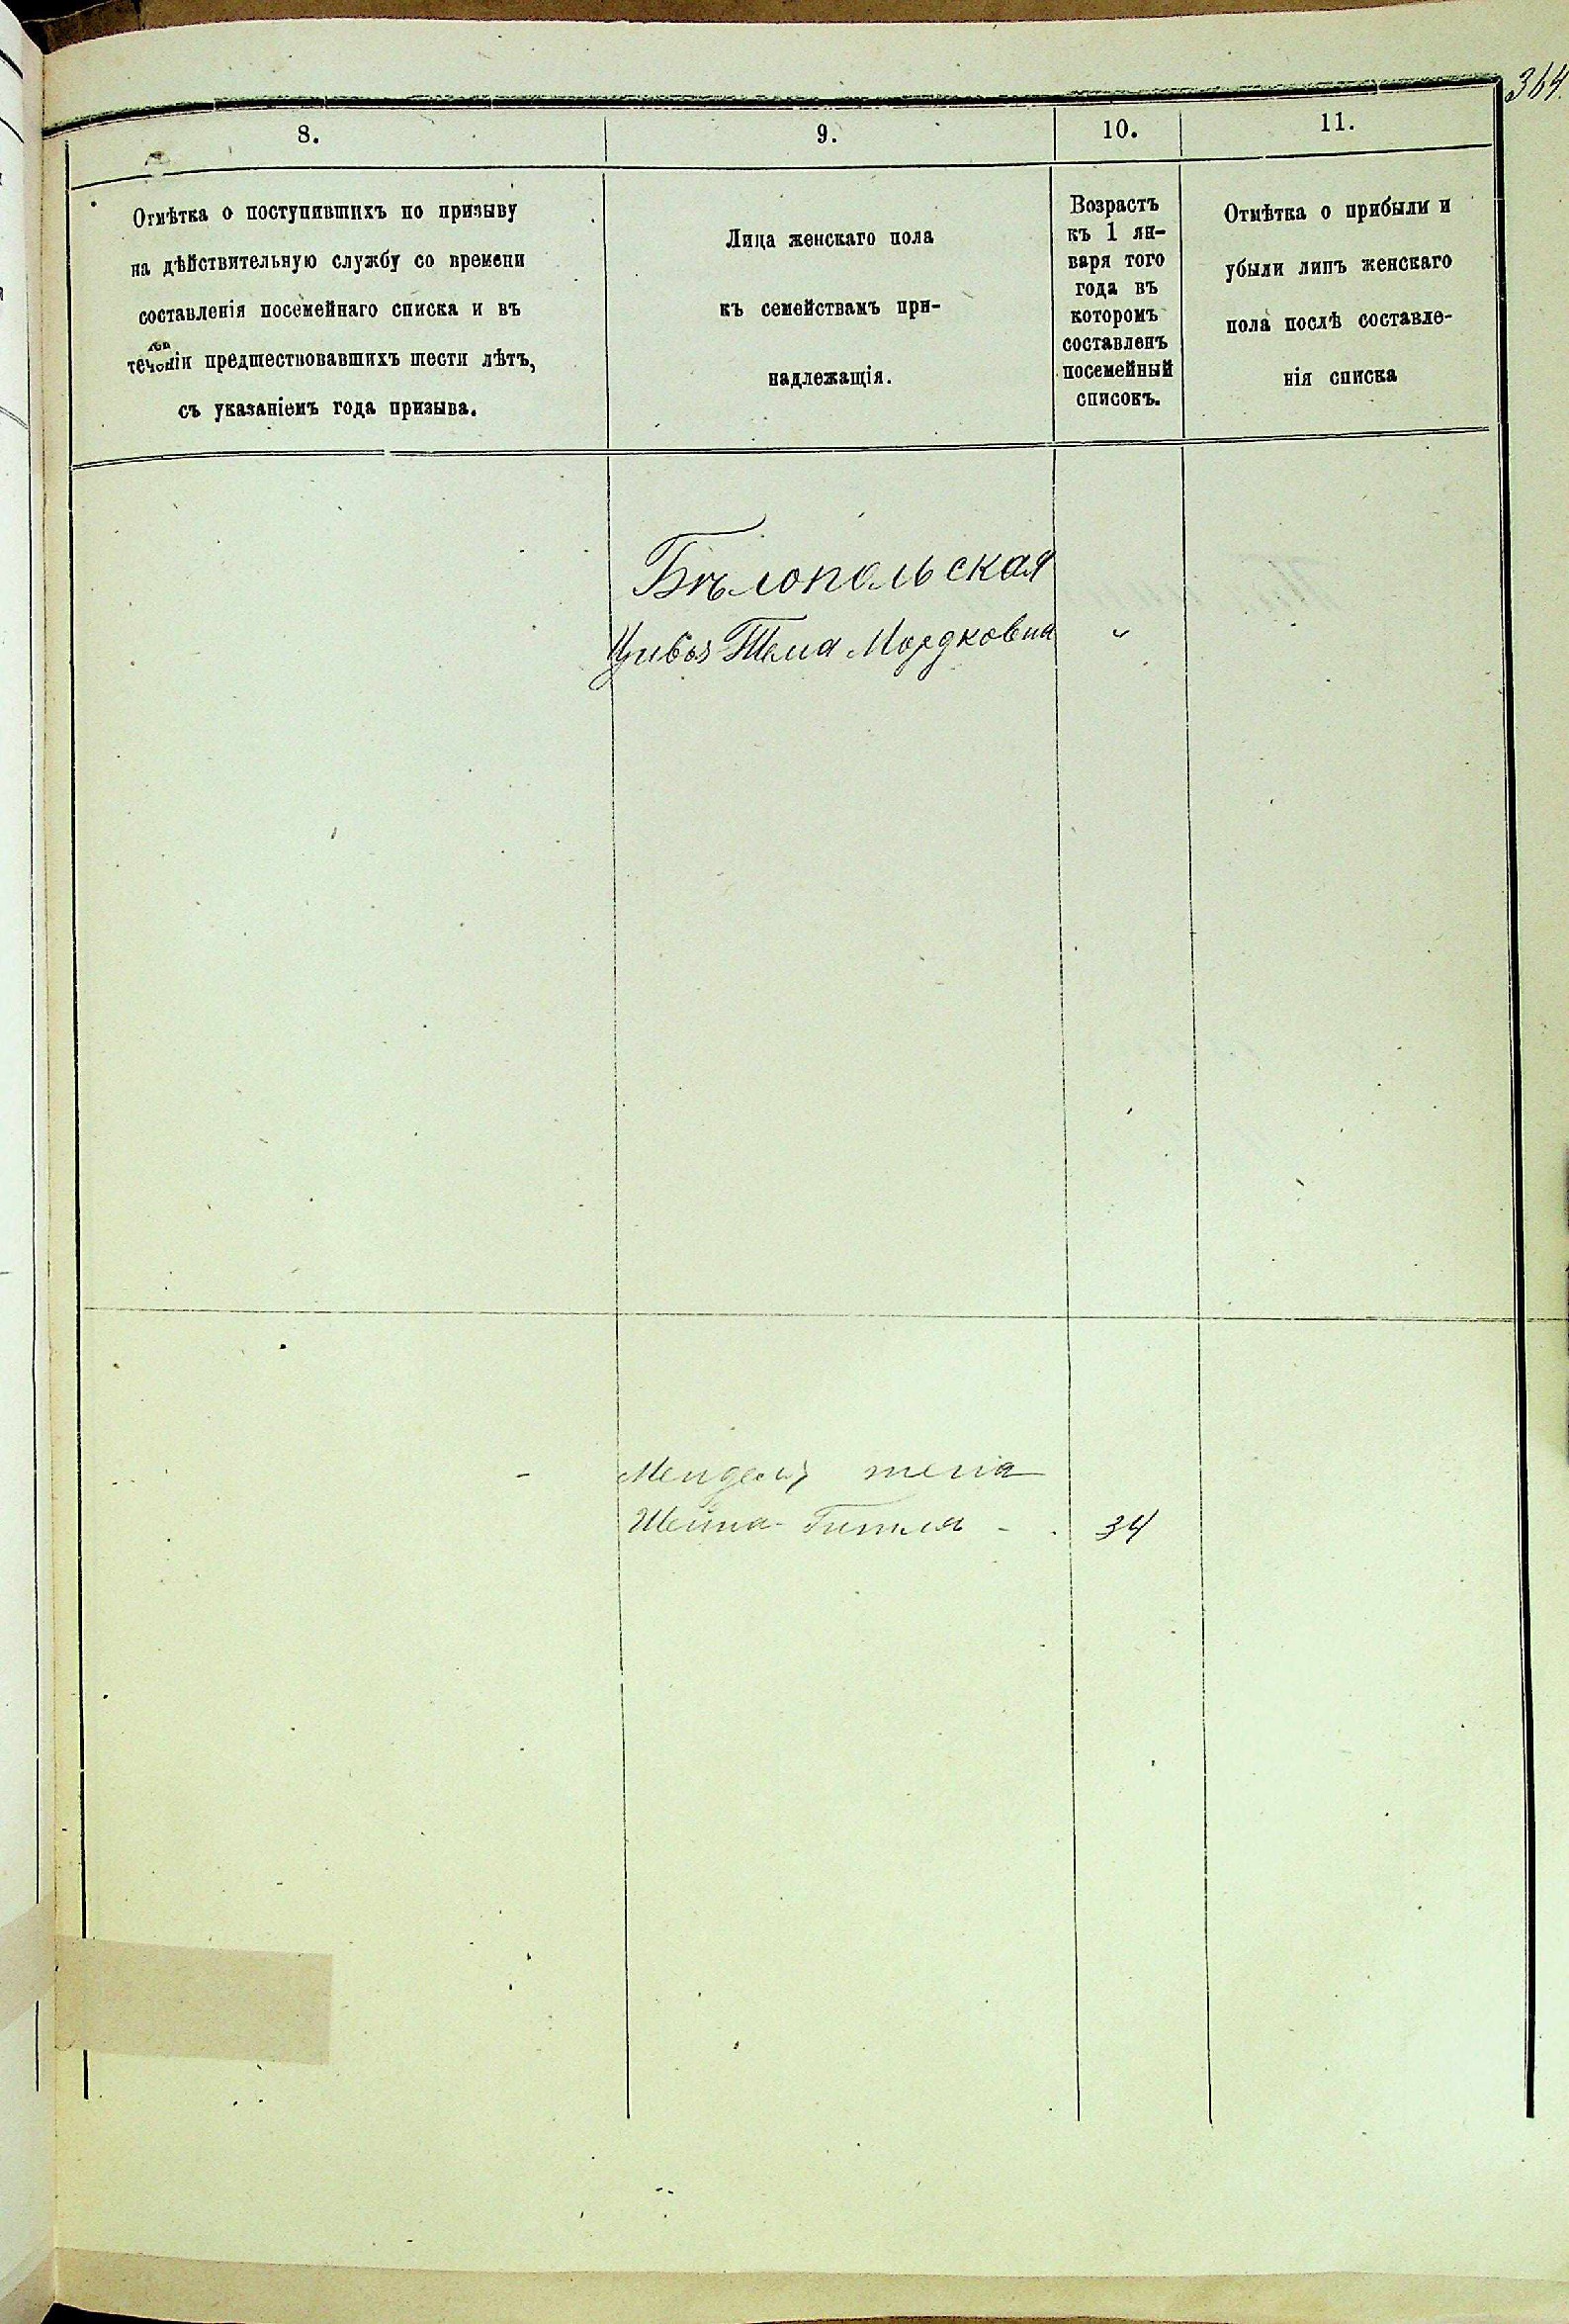 364.
8.
9.
10.
11.
Отмѣтка о поступившихъ по призыву
на дѣйствительную службу со времени
составленія посемейнаго списка и въ
теченіи предшествовавшихъ шести лѣтъ,
съ указаніемъ года призыва.
Лица женскаго пола
къ семействамъ при-
надлежащія.
Возрастъ
къ 1 ян-
варя того
года въ
которомъ
составленъ
посемейный
списокъ.
Отмѣтка о прибыли и
убыли лицъ женскаго
пола послѣ составле-
нія списка
Бѣлопольская
Мордковна "
Менделя жена
Шейна-Гитля - 34